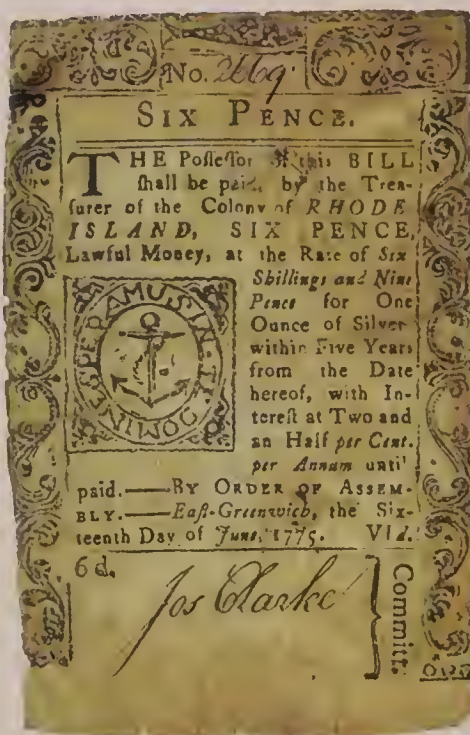 No. 2669
SIX PENCE.
THE Poſſeſſor of this BILL
ſhall be paid, by the Trea-
ſurer of the Colony of RHODE
ISLAND, SIX PENCE,
Lawful Money, at the Rate of Six
Shillings and Nine
Pence for One
Ounce of Silver
within Five Years
from the Date
hereof, with In-
tereſt at Two and
an Half per Cent.
per Annum until
IN TE DOMINE SPERAMUS
paid.——BY ORDER OF ASSEM-
BLY.——Eaſt-Greenwich, the Six-
teenth Day of June, 1775. VI d.
6 d.
Jos Clarke
Committ.